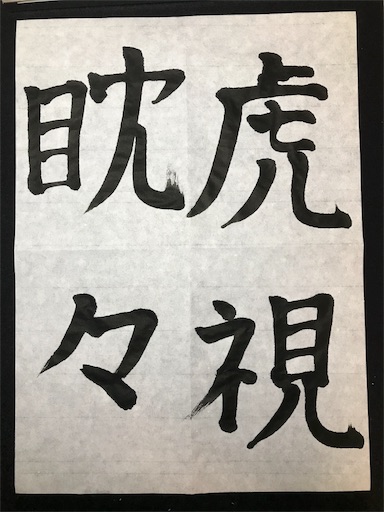 虎視
眈々